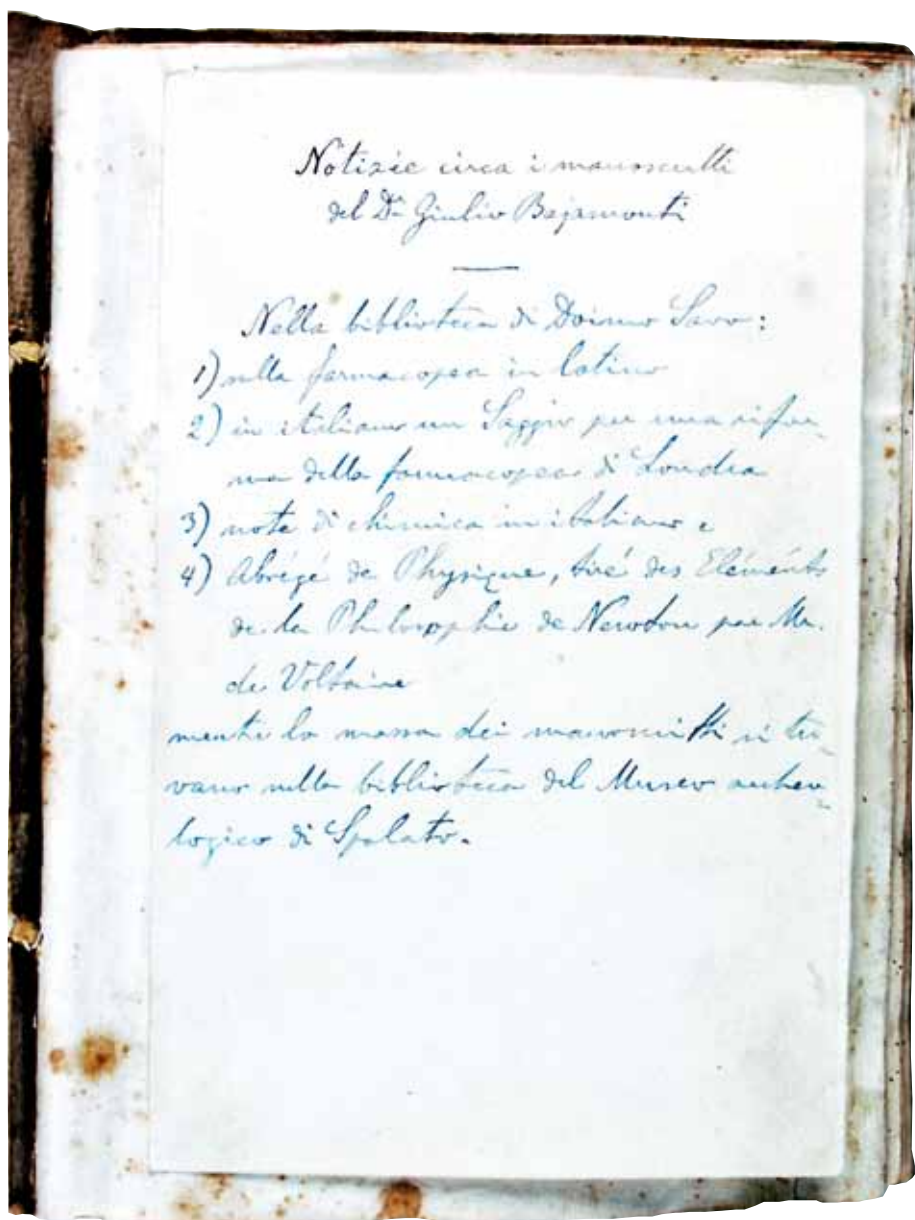 Notizie circa i manoscritti
del Dr Giulio Bajamonti
Nella biblioteca di Doimo Savo:
1) nella farmacopea in latino
2) in italiano un Saggio per una rifor-
ma della farmacopea di Londra
3) note di chimica in italiano e
4) Abrégé de Physique, tiré des Eléménts
de la Philosophie de Newton par Mr.
de Voltaire
mentre la massa dei manoscritti si tro-
vano nella biblioteca del Museo archeo-
logico di Spalato.